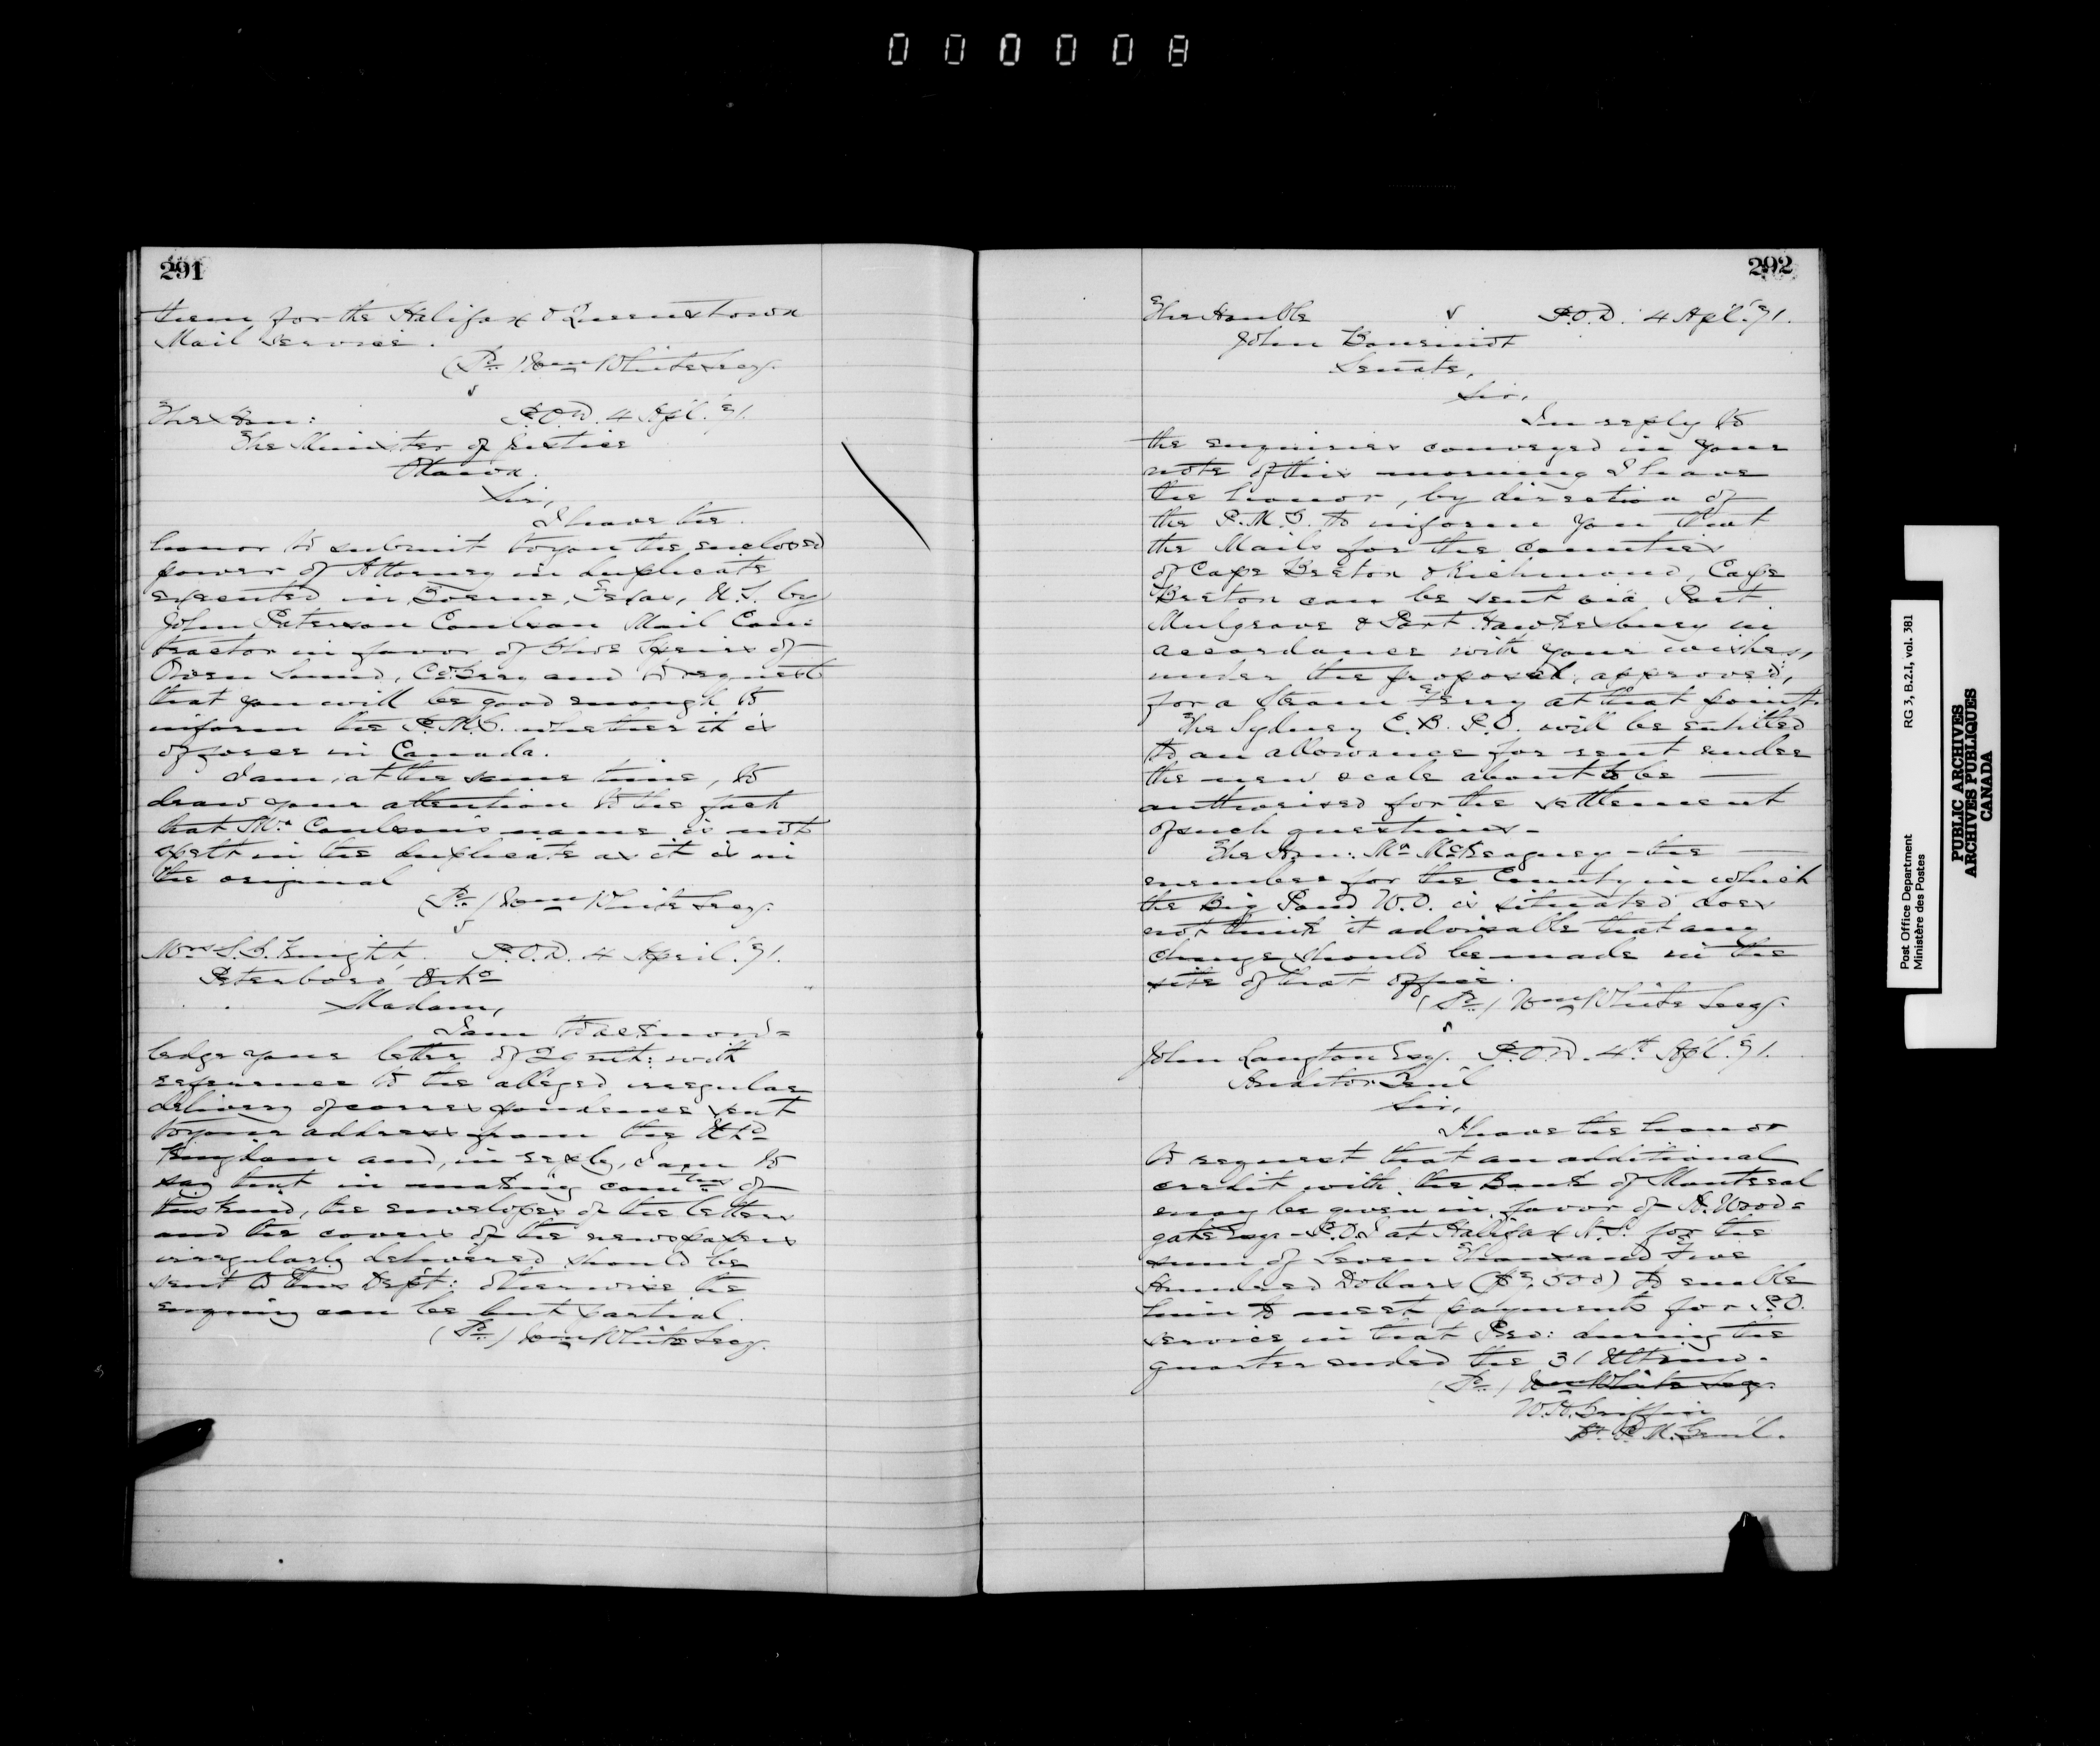 000008
291
them for the Halifax & Queenstown
Mail Service.
(Sd.) Wm White Secy.
The Hon: P.O.D. 4 Apl. '71.
The Minister of Justice
Ottawa.
Sir,
I have the
honor to submit to you the enclosed
power of Attorney in duplicate
executed in Boerne, Texas, U.S. by
John Paterson Coulson Mail Con:
tractor in favor of Spiers of
Owen Sound, and to request
that you will be good enough to
inform the P.M.G. whether it is
of force in Canada.
I am, at the same time, to
draw your attention to the fact
that Mr. Coulson's name is not
spelt in the duplicate as it is in
the original
(Sd.) Wm White Secy.
Mrs S.S. Knight. P.O.D. 4 April. '71.
Peterboro', Onto
Madam,
I am to acknow=
ledge your letter of 29 ult: with
reference to the alleged irregular
delivery of correspondence sent
to your address from the Utd
Kingdom and, in reply, I am to
say that in making comtns of
this kind, the envelopes of the letters
and the covers of the newspapers
irregularly delivered should be
sent to this Dept: otherwise the
enquiry can be but partial.
(Sd.) Wm White Secy.
292
The Honble P.O.D. 4 Apl. '71.
John Bourinot
Senate,
Sir,
In reply to
the enquiries conveyed in your
note of this morning I have
the honor, by direction of
the P.M.G. to inform you that
the Mails for the counties
of Cape Breton & Richmond, Cape
Breton can be sent via Port
Mulgrave & Port Hawkesbury in
accordance with your wishes,
under the proposal, approved,
for a Steam Ferry at that point.
The Sydney C.B. P.O. will be entitled
to an allowance for rent under
the new scale about to be —
authorised for the settlement
of such questions -
The Hon: Mr McKeagney - the —
member for the County in which
the Big Pond W.O. is situated does
not think it advisable that any
change should be made in the
site of that office.
(Sd.) Wm White Secy.
John Langton Esq. P.O.D. 4th Apl. '71.
Auditor Genl
Sir,
I have the honor
to request that an additional
credit with the Bank of Montreal
may be given in favor of A. Wood=
gate Esqr - P.O.I at Halifax N.S. for the
sum of Seven Thousand Five
Hundred Dollars ($7,500) to enable
him to meet payments for P.O.
service in that Pro: during the
quarter ended the 31 Ultimo.
(Sd.) Wm White Secy.
W.H. Griffin
Dy. P.M. Genl.
Post Office Department RG 3, B.2.I, vol. 381
Ministère des Postes
PUBLIC ARCHIVES
ARCHIVES PUBLIQUES
CANADA